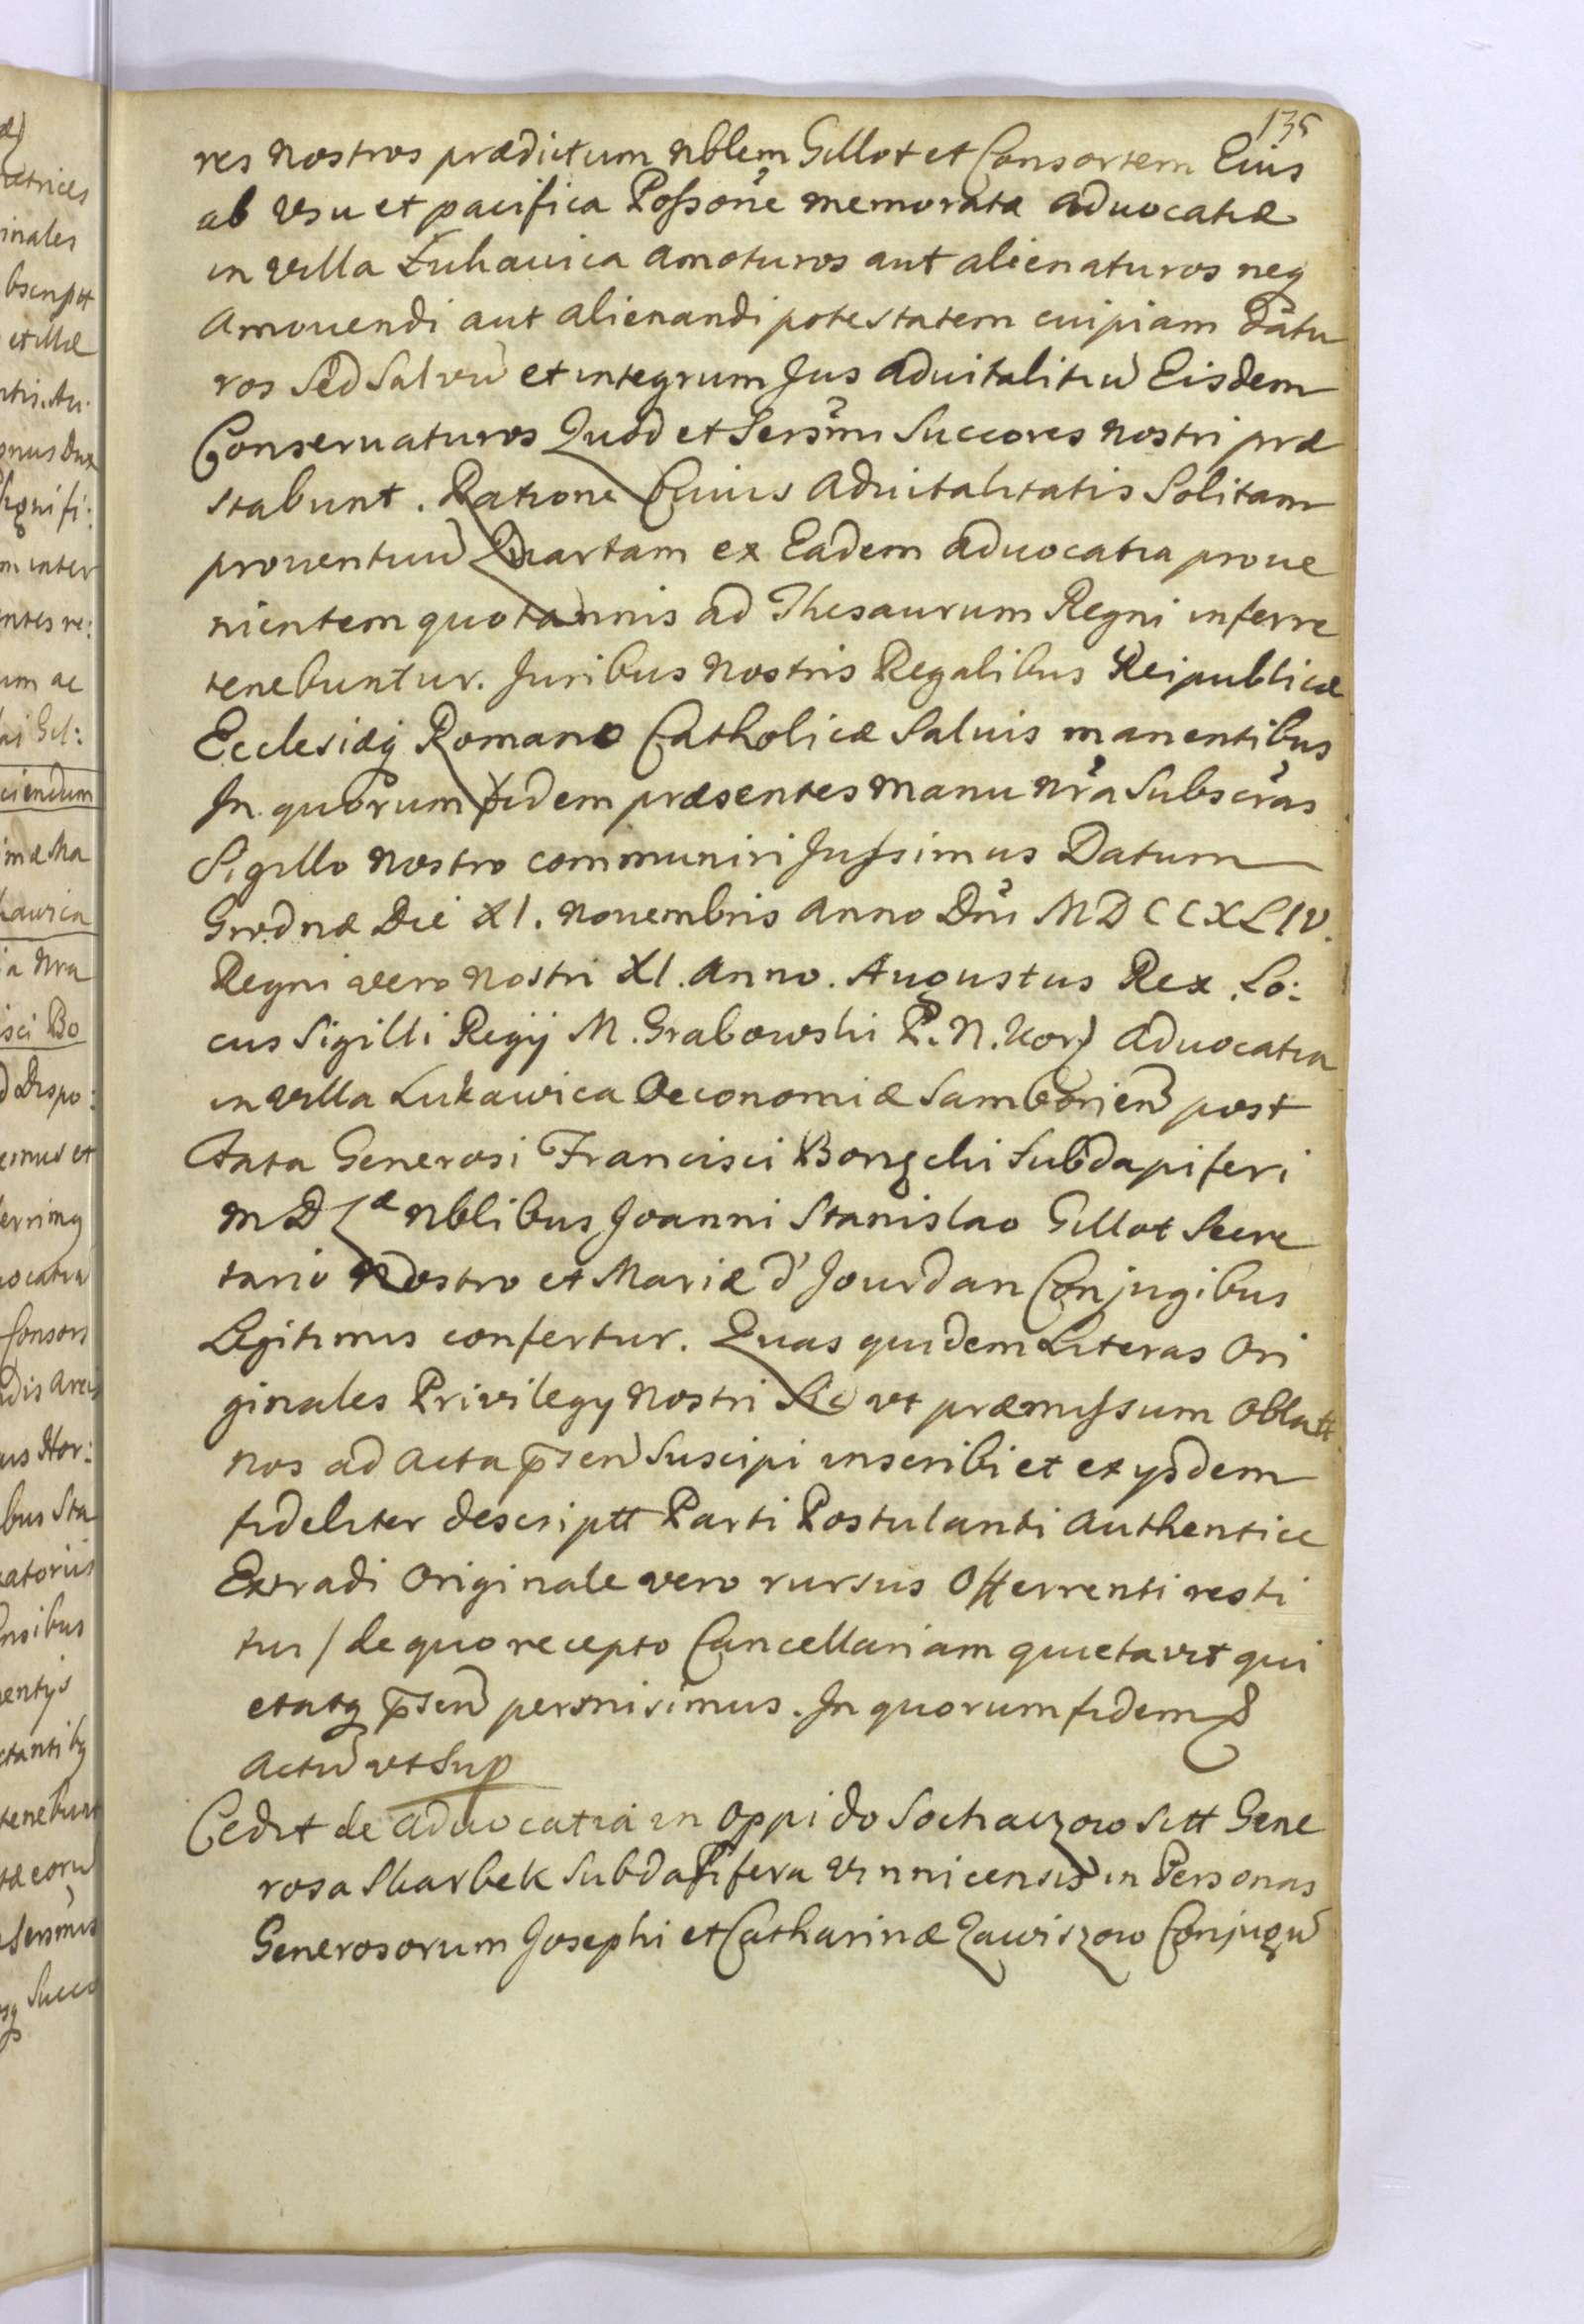 135
res nostros prædictum nblem Gillot et Consortem Eius
ab Vsu et pacifica Possone memoratæ aduocatiæ
in villa Łukawica amoturos aut alienaturos neq
amouendi aut alienandi potestatem cuipiam datu
ros sed salvũ et integrum Jus aduitalitiũ Eisdem
Conseruaturos Quod et Sersmi Succores nostri præ
stabunt. Ratione Cuius aduitalitatis Solitam
prouentuũ Quartam ex Eadem aduocatia proue
nientem quotannis ad Thesaurum Regni inferre
tenebuntur. Juribus nostris Regalibus Reipublicæ
Ecclesiæq Romanæ Catholicæ Saluis manentibus
In quorum fidem præsentes manu nra Subscras
Sigillo nostro communiri Jussimus Datum
Grodnæ Die XI. nouembris anno Dni MDCCXLIV.
Regni vero nostri XI. anno. Augustus Rex. Lo:
cus Sigilli Regij M. Grabowski P. N. Kor) aduocatia
in villa Łukawica Oeconomiæ Samborien post
fata Generosi Francisci Bonge​cki Subdapiferi
M D L​æ nblibus Joanni Stanislao Gillot Secre
tario nostro et Mariæ d' Jourdan Conjugibus
Legitimis confertur. Quas quidem Literas Ori
ginales Privilegy nostri Sic vt præmissum oblatt
nos ad acta psen Suscipi inscribi et ex ysdem
fideliter descriptt Parti Postulanti authentice
Extradi Originale vero rursus Offerrenti resti
tui / de quo recepto Cancellariam quietavit qui
etatq psen permisimus. In quorum fidem &
actũ vt Sup
Cedit de aduocatia in oppido Sochaczow sitt Gene
rosa Skarbek Subdapifera Vinnicensis in Personas
Generosorum Josephi et Catharinæ Zawiszow Conjugũ